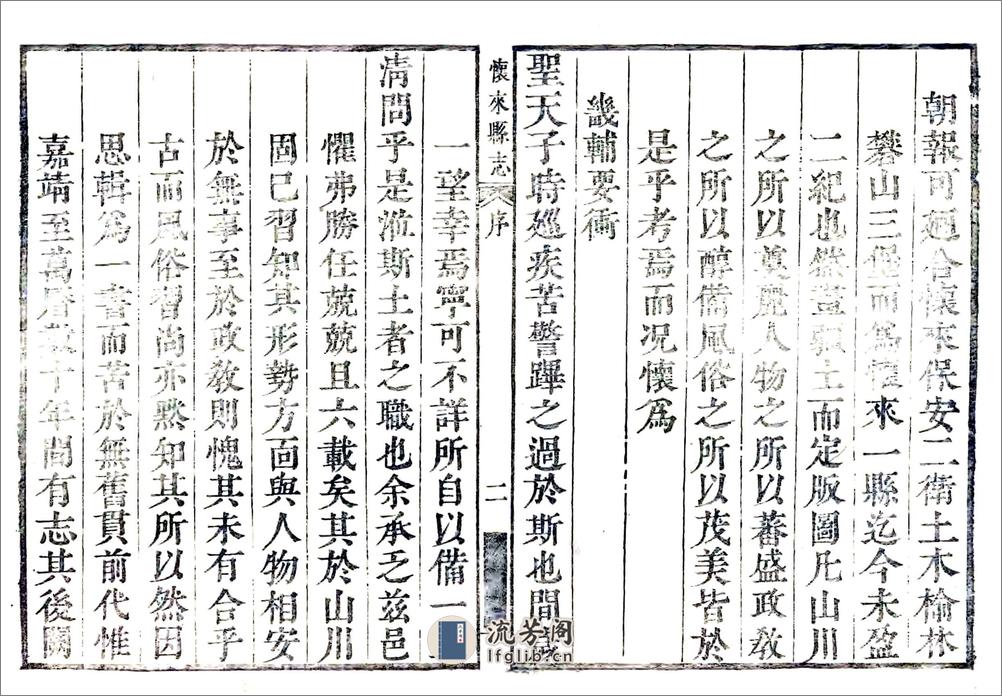 朝報可廼合懷來保安二衛土木榆林
礬山三堡而為懷來一縣迄今未盈
二紀也然豈疆土而定版圖凡山川
之所以尊麗人物之所以蕃盛政教
之所以醇備風俗之所以茂美皆於
是乎考焉而况懷為
畿輔要衝
聖天子時廵疾苦警蹕之過於斯也間
懷來縣志
序
二
一望幸焉寧可不詳所自以備一
清問乎是涖斯土者之職也余承乏茲邑
懼弗勝任兢兢且六載矣其於山川
固已習知其形勢方面與人物相安
於無事至於政教則愧其未有合乎
古而風俗習尚亦黙知其所以然因
思輯爲一書而苦於無舊貫前代惟
嘉靖至萬曆數十年間有志其後闕
流芳閣
lfglib.cn